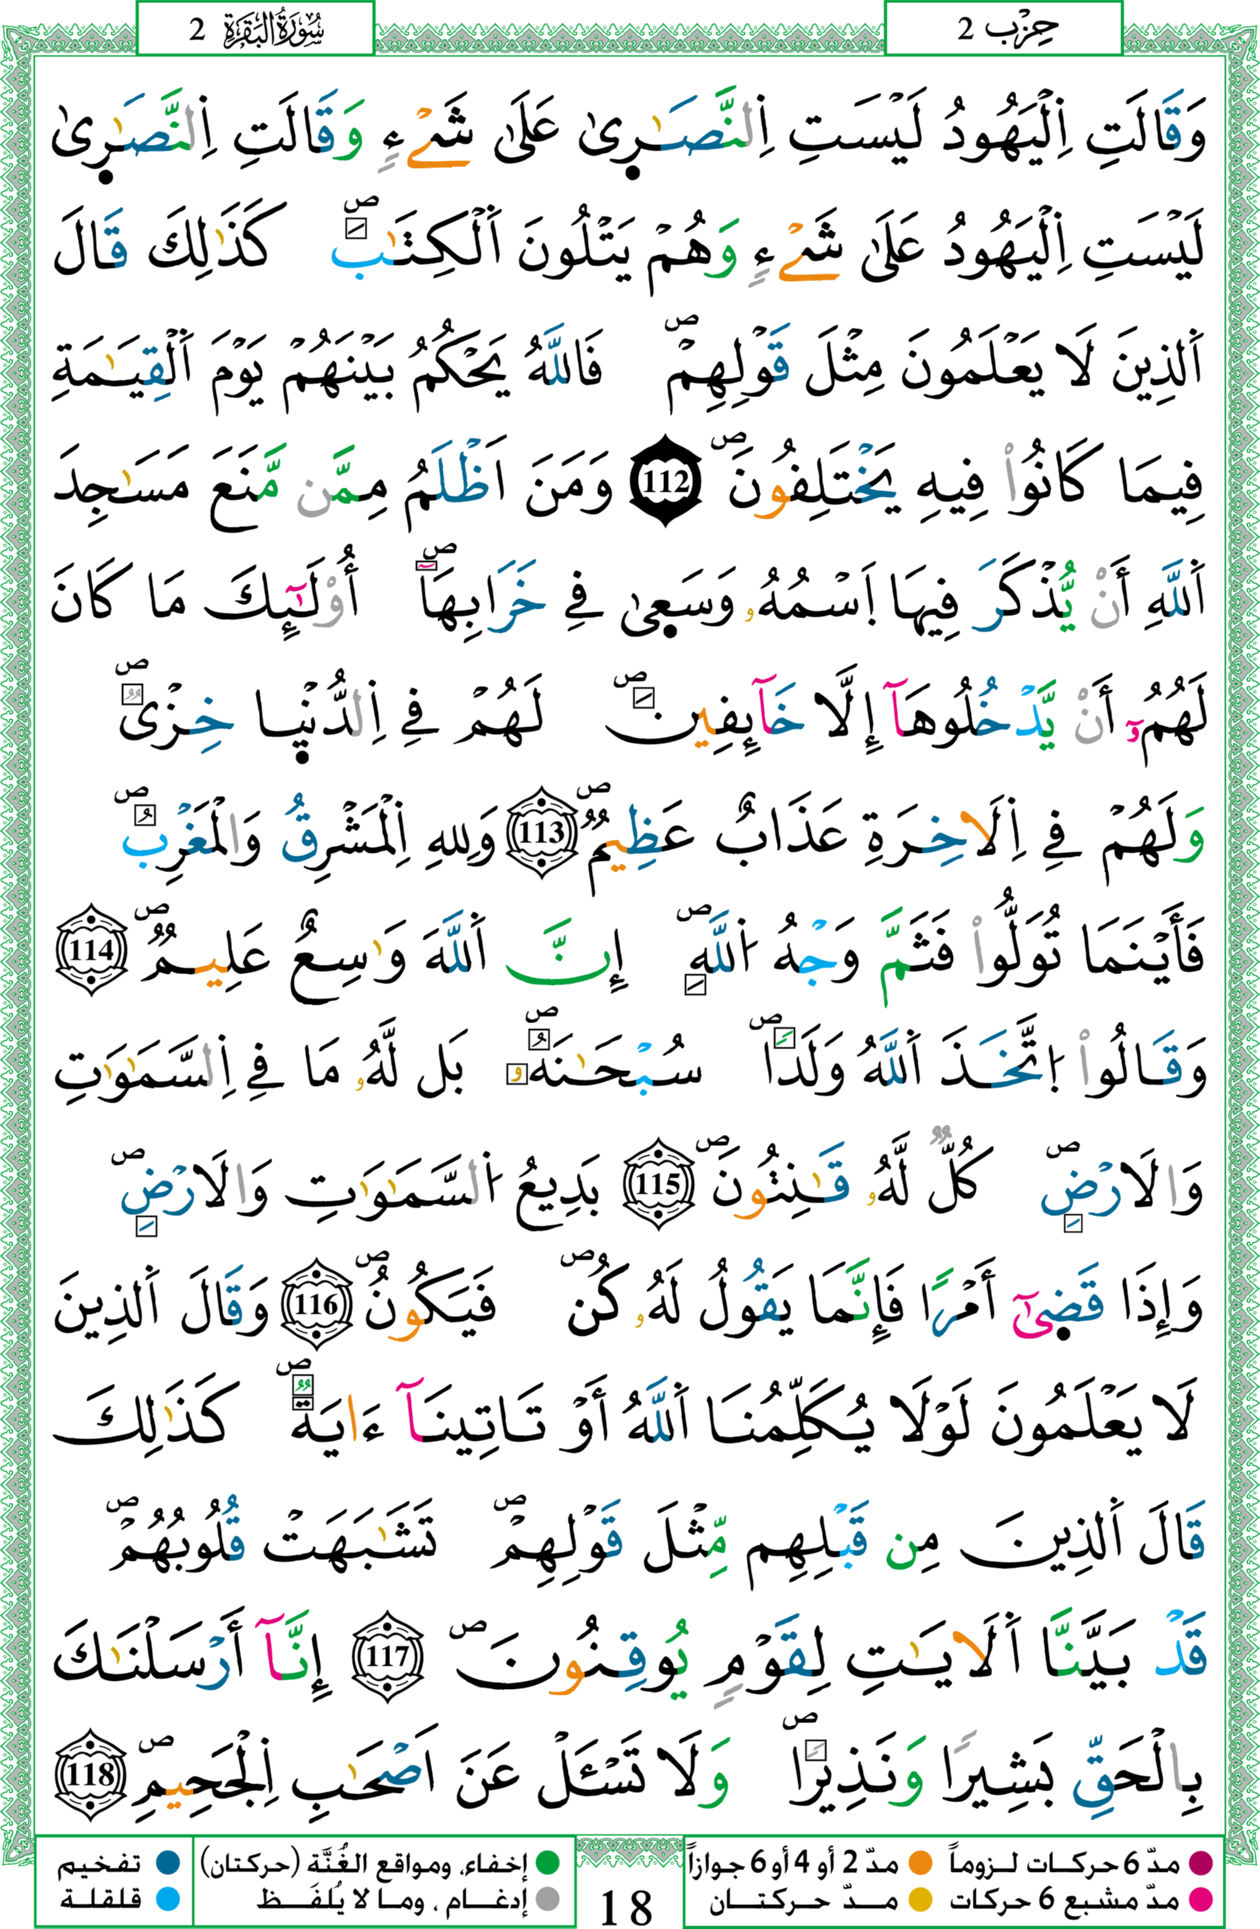 حِزْب 2
سُورَةُ البَقَرَةِ 2
وَقَالَتِ اِلْيَهُودُ لَيْسَتِ اِلنَّصَٰرِىٰ عَلَىٰ شَےْءٖ وَقَالَتِ اِلنَّصَٰرِىٰ
لَيْسَتِ اِلْيَهُودُ عَلَىٰ شَےْءٖ وَهُمْ يَتْلُونَ اَلْكِتَٰبَۖ كَذَٰلِكَ قَالَ
اَلذِينَ لَا يَعْلَمُونَ مِثْلَ قَوْلِهِمْۖ فَاللَّهُ يَحْكُمُ بَيْنَهُمْ يَوْمَ اَلْقِيَٰمَةِ
فِيمَا كَانُواْ فِيهِ يَخْتَلِفُونَۖ 112 وَمَنَ اَظْلَمُ مِمَّن مَّنَعَ مَسَٰجِدَ
اَللَّهِ أَنْ يُّذْكَرَ فِيهَا اَسْمُهُۥ وَسَعِىٰ فِے خَرَابِهَآۖ أُوْلَٰٓئِكَ مَا كَانَ
لَهُمُۥٓ أَنْ يَّدْخُلُوهَآ إِلَّا خَآئِفِينَۖ لَهُمْ فِے اِلدُّنْيِا خِزْىٞۖ
وَلَهُمْ فِے اِلَاخِرَةِ عَذَابٌ عَظِيمٞۖ 113 وَلِلهِ اِلْمَشْرِقُ وَالْمَغْرِبُۖ
فَأَيْنَمَا تُوَلُّواْ فَثَمَّ وَجْهُ اُللَّهِۖ إِنَّ اَللَّهَ وَٰسِعٌ عَلِيمٞۖ 114
وَقَالُواْ اُتَّخَذَ اَللَّهُ وَلَداٗۖ سُبْحَٰنَهُۥۖ بَل لَّهُۥ مَا فِے اِلسَّمَٰوَٰتِ
وَالَارْضِۖ كُلّٞ لَّهُۥ قَٰنِتُونَۖ 115 بَدِيعُ اُلسَّمَٰوَٰتِ وَالَارْضِۖ
وَإِذَا قَضِىٰٓ أَمْراٗ فَإِنَّمَا يَقُولُ لَهُۥ كُنۖ فَيَكُونُۖ 116 وَقَالَ اَلذِينَ
لَا يَعْلَمُونَ لَوْلَا يُكَلِّمُنَا اَللَّهُ أَوْ تَاتِينَآ ءَايَةٞۖ كَذَٰلِكَ
قَالَ اَلذِينَ مِن قَبْلِهِم مِّثْلَ قَوْلِهِمْۖ تَشَٰبَهَتْ قُلُوبُهُمْۖ
قَدْ بَيَّنَّا اَلَايَٰتِ لِقَوْمٖ يُوقِنُونَۖ 117 إِنَّآ أَرْسَلْنَٰكَ
بِالْحَقِّ بَشِيراٗ وَنَذِيراٗۖ وَلَا تَسْـَٔلْ عَنَ اَصْحَٰبِ اِلْجَحِيمِۖ 118
مدّ 6 حركات لـزوماً
مدّ 2 أو 4 أو 6 جوازاً
إخفاء، ومواقع الغُنَّة (حركتان)
تفخيم
مدّ مشبع 6 حركات
مــدّ حـركتــان
إدغـام ، ومـا لا يُلفَـظ
قلقلة
18